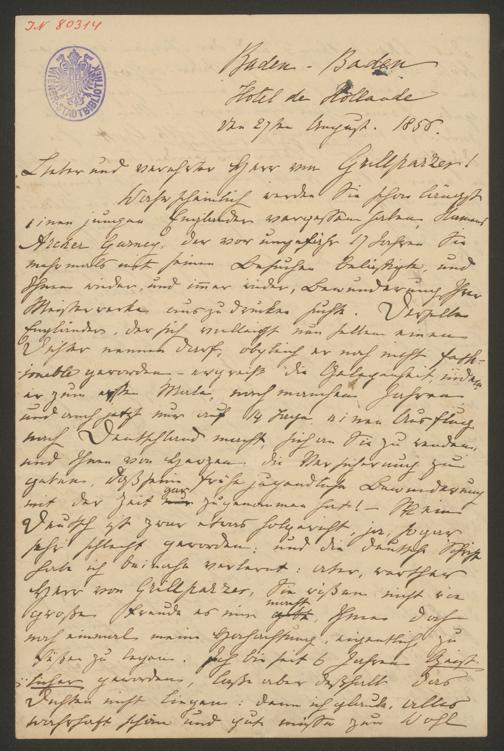 I.N 80314
WIENER STADTBIBLIOTHEK
Baden-Baden
Hôtel de Hollande
den 27sten August. 1856.
Lieber und verehrter Herr von Grillparzer!
Wahrscheinlich werden Sie schon längst
einen jungen Engländer vergessen haben, Namens
Archer Gurney, der vor ungefähr 17 Jahren Sie
mehrmals mit seinen Besuchen belästigte, und
Ihnen wieder, und immer wieder, Bewunderung Ihrer
Meisterwerke auszudrücken suchte. Derselbe
Engländer, der sich vielleicht nun selber einen
Dichter nennen darf, obgleich er noch nicht fash-
ionable geworden – ergreift die Gelegenheit, indem
er zum ersten Male, nach manchen Jahren
und auch jetzt nur auf 14 Tage einen Ausflug
nach Deutschland macht, sich an Sie zu wenden,
und Ihnen von Herzen die Versicherung zu
geben, daß seine frühe jugendliche Bewunderung
mit der Zeit gar zugenommen hat! – Mein
Deutsch ist zwar etwas holpericht, ja, sogar
sehr schlecht geworden: und die deutsche Schrift
habe ich beinahe verlernt: aber, werther
Herr von Grillparzer, Sie wißen nicht wie
große Freude es mir macht, Ihnen doch
noch einmal meine Hochachtung, eigentlich zu
Füßen zu legen. Ich bin seit 6 Jahren Geist-
licher geworden, laße aber deßhalb das
Dichten nicht liegen: denn ich glaube, alles
wahrhaft schöne und gute müße zum Wohl